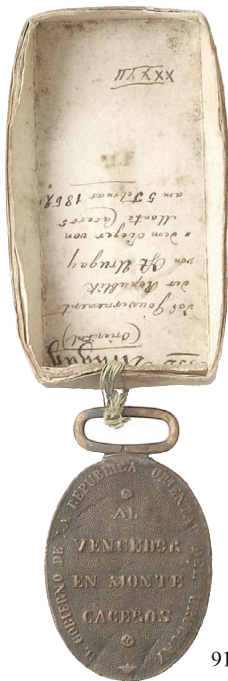 (Oriental)
das Gouvernement
der Republik
von Urugay
"dem Sieger von
Monte Caceros
am 5 Februar 1852
XXXVII
GOBIERNO DE LA REPUBLICA ORIENTAL DEL URUGUAY
AL
VENCEDOR
EN MONTE
CACEROS
91